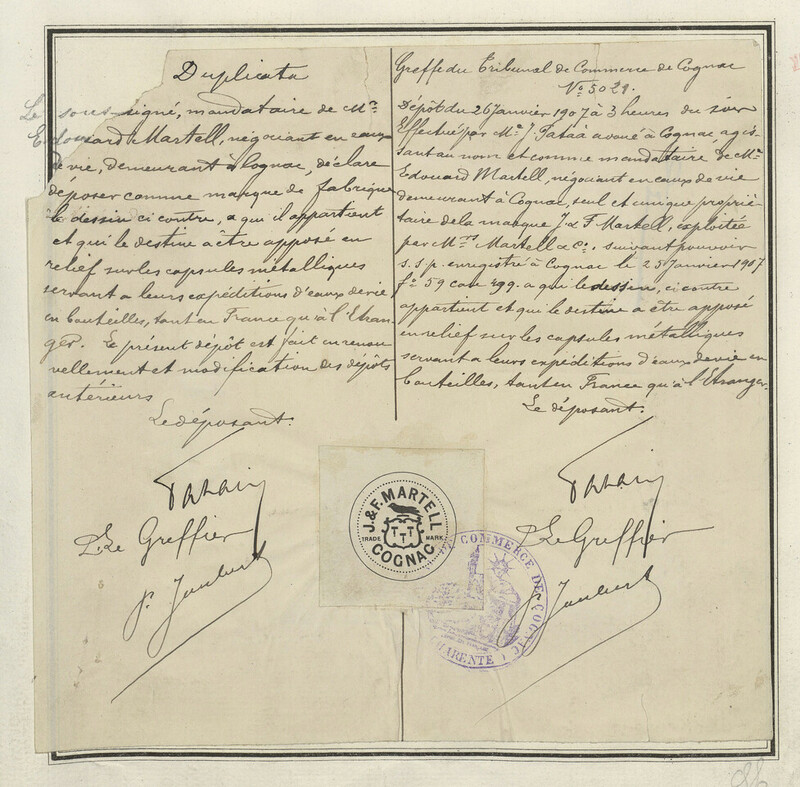 Duplicata
Le soussigné, mandataire de Mr
Edouard Martell, négociant en eaux
de vie, demeurant à Cognac, déclare
déposer comme marque de fabrique
le dessin ci contre, a qui il appartient
et qui le destine a être apposé en
relief sur les capsules métalliques
servant a leurs expéditions d'eaux de vie
en bouteilles, tant en France qu'à l'Etran-
ger. Le présent dépôt est fait en renou
vellement et modification des dépôts
antérieurs
Le déposant.
Le Greffier
Greffe du Tribunal de Commerce de Cognac
No 5021.
Dépôt du 26 Janvier 1907 à 3 heures du soir
Effectué par Me J. avoué à Cognac, agis-
sant au nom et comme mandataire de Mr
Edouard Martell, négociant en eaux de vie
demeurant à Cognac, seul et unique proprié-
taire de la marque J & F Martell, exploitée
par Mrs Martell & Co. suivant pouvoir
s.s.p. enregistré à Cognac le 25 Janvier 1907
fo 59 case 499. a qui le dessin, ci contre
appartient et qui le destine a être apposé
en relief sur les capsules métalliques
servant a leurs expéditions d'eaux de vie en
bouteilles, tant en France qu'à l'Etranger.
Le déposant.
Le Greffier
J. & F. MARTELL
TRADE MARK
COGNAC
COMMERCE DE COGNAC
CHARENTE